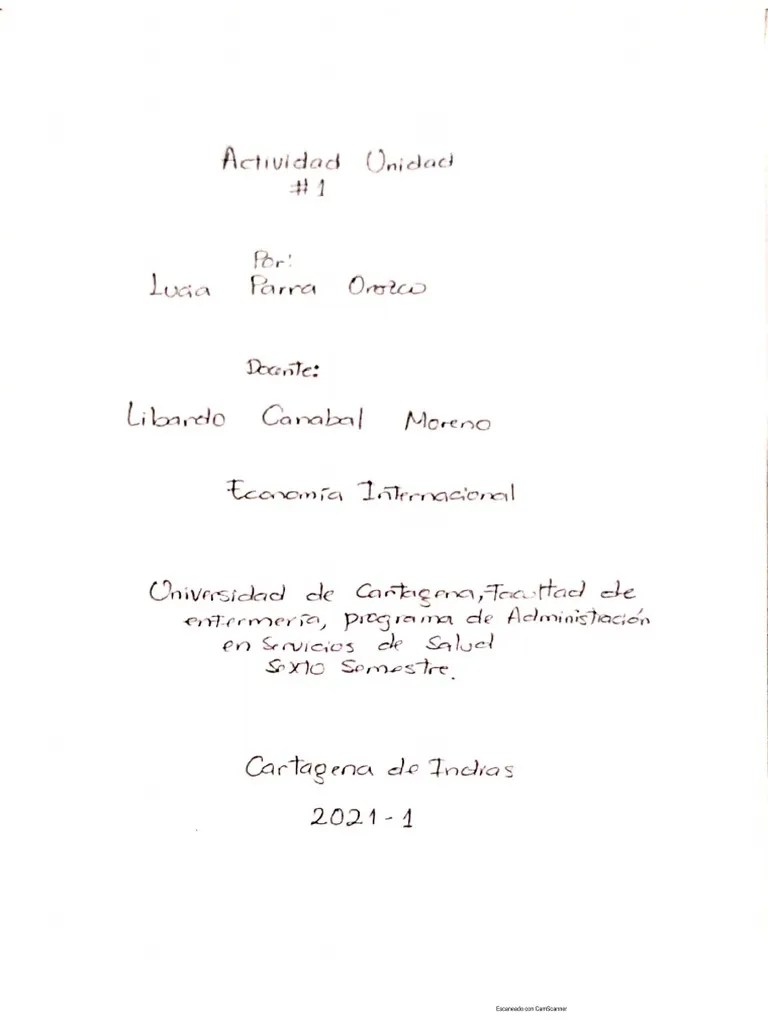 Actividad Unidad
#1
Por:
Lucia Parra Orozco
Docente:
Libardo Canabal Moreno
Economía Internacional
Universidad de Cartagena, Facultad de
enfermería, programa de Administración
en Servicios de Salud
Sexto Semestre.
Cartagena de Indias
2021-1
Escaneado con CamScanner